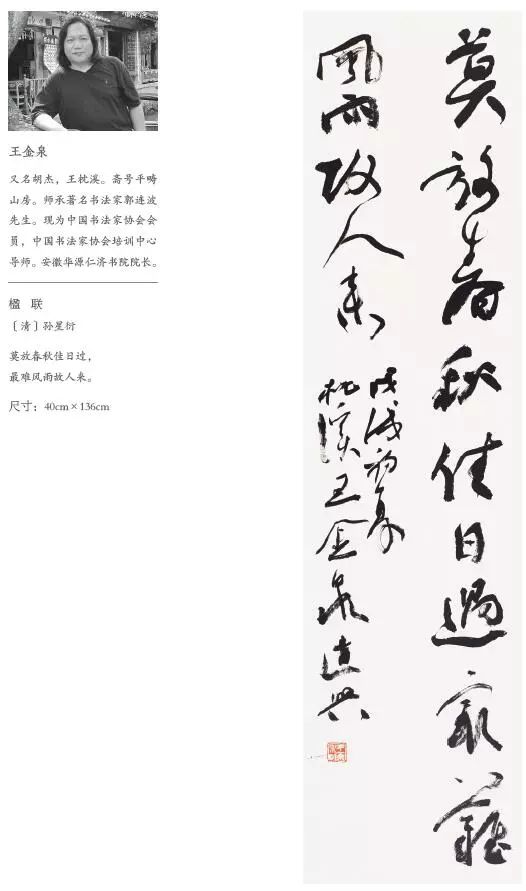 王金泉
又名胡杰，王枕溪。斋号平畴
山房。师承著名书法家郭连波
先生。现为中国书法家协会会
员，中国书法家协会培训中心
导师。安徽华源仁济书院院长。
楹 联
〔清〕孙星衍
莫放春秋佳日过，
最难风雨故人来。
尺寸：40cm×136cm
莫放春秋佳日過最難
風雨故人來
戊戌初夏
枕溪王金泉遣興